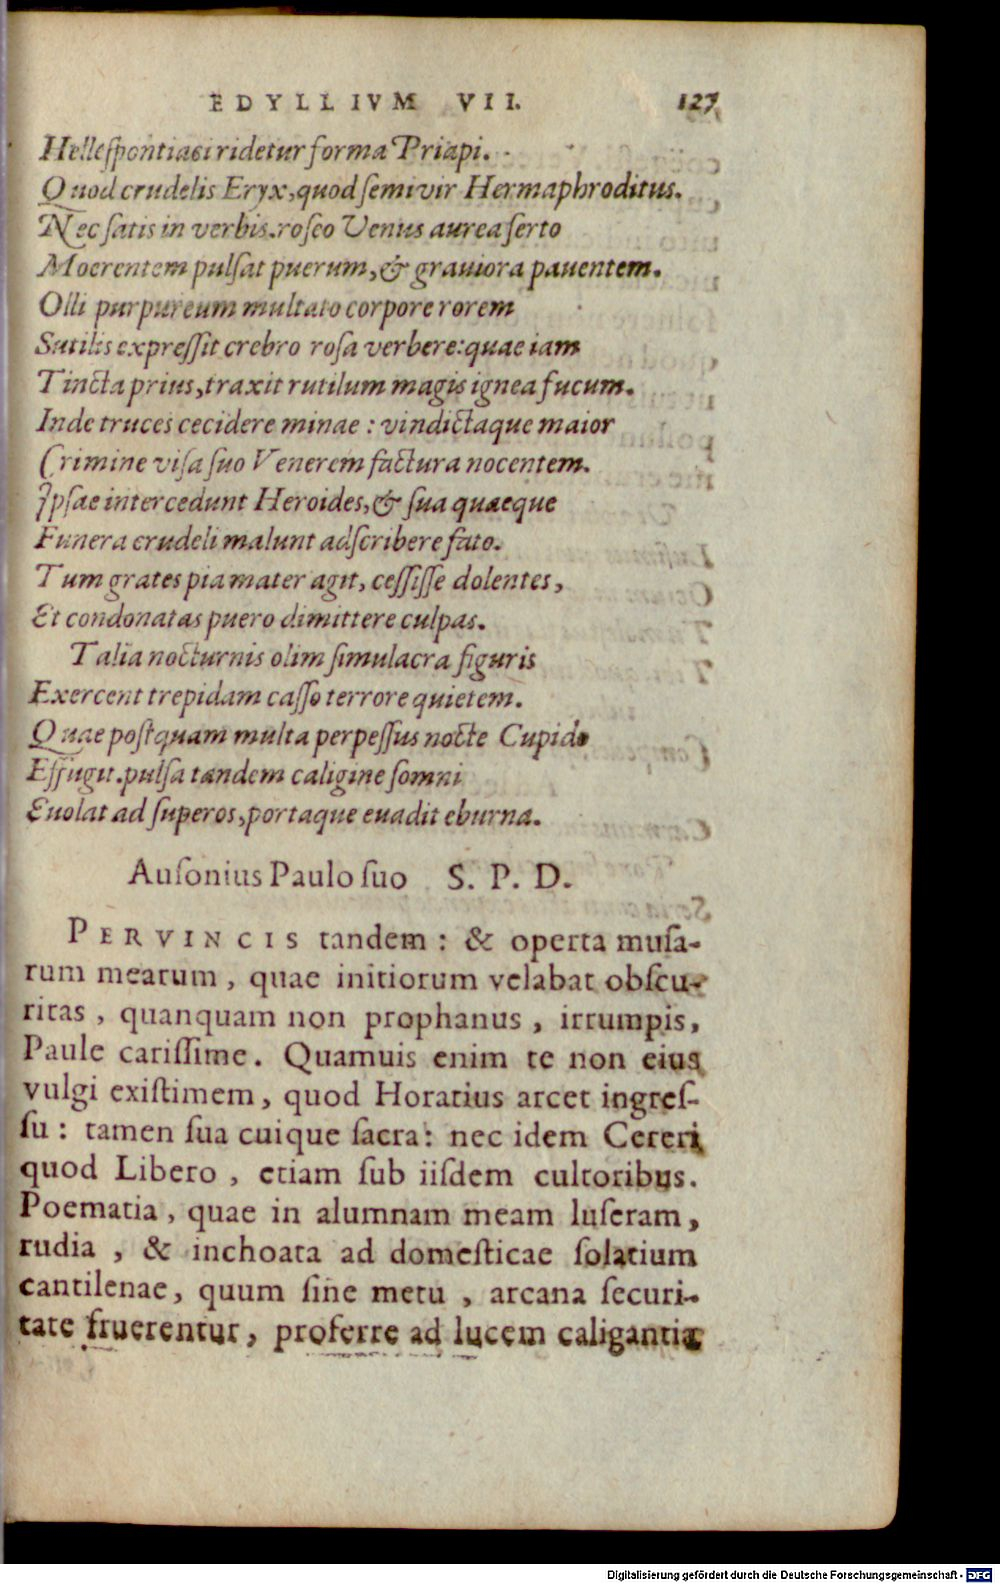 EDYLLIVM VII. 127
Helleſpontiaci ridetur forma Priapi.
Quod crudelis Eryx, quod ſemivir Hermaphroditus.
Nec ſatis in verbis. roſeo Venus aurea ſerto
Moerentem pulſat puerum, & graviora paventem.
Olli purpureum multato corpore rorem
Sutilis expreſſit crebro roſa verbere: quae iam
Tincta prius, traxit rutilum magis ignea fucum.
Inde truces cecidere minae: vindictaque maior
Crimine viſa ſuo Venerem factura nocentem.
Ipſae intercedunt Heroides, & ſua quaeque
Funera crudeli malunt adſcribere fato.
Tum grates pia mater agit, ceſſiſſe dolentes,
Et condonatas puero dimittere culpas.
Talia nocturnis olim ſimulacra figuris
Exercent trepidam caſſo terrore quietem.
Quae poſtquam multa perpeſſus nocte Cupido
Effugit. pulſa tandem caligine ſomni
Evolat ad ſuperos, portaque evadit eburna.
Auſonius Paulo ſuo S. P. D.
PERVINCIS tandem: & operta muſa-
rum mearum, quae initiorum velabat obſcu-
ritas, quanquam non prophanus, irrumpis,
Paule cariſſime. Quamuis enim te non eius
vulgi exiſtimem, quod Horatius arcet ingreſ-
ſu: tamen ſua cuique ſacra: nec idem Cereri
quod Libero, etiam ſub iiſdem cultoribus.
Poematia, quae in alumnam meam luſeram,
rudia, & inchoata ad domeſticae ſolatium
cantilenae, quum ſine metu, arcana ſecuri-
tate fruerentur, proferre ad lucem caligantia
Digitalisierung gefördert durch die Deutsche Forschungsgemeinschaft - DFG